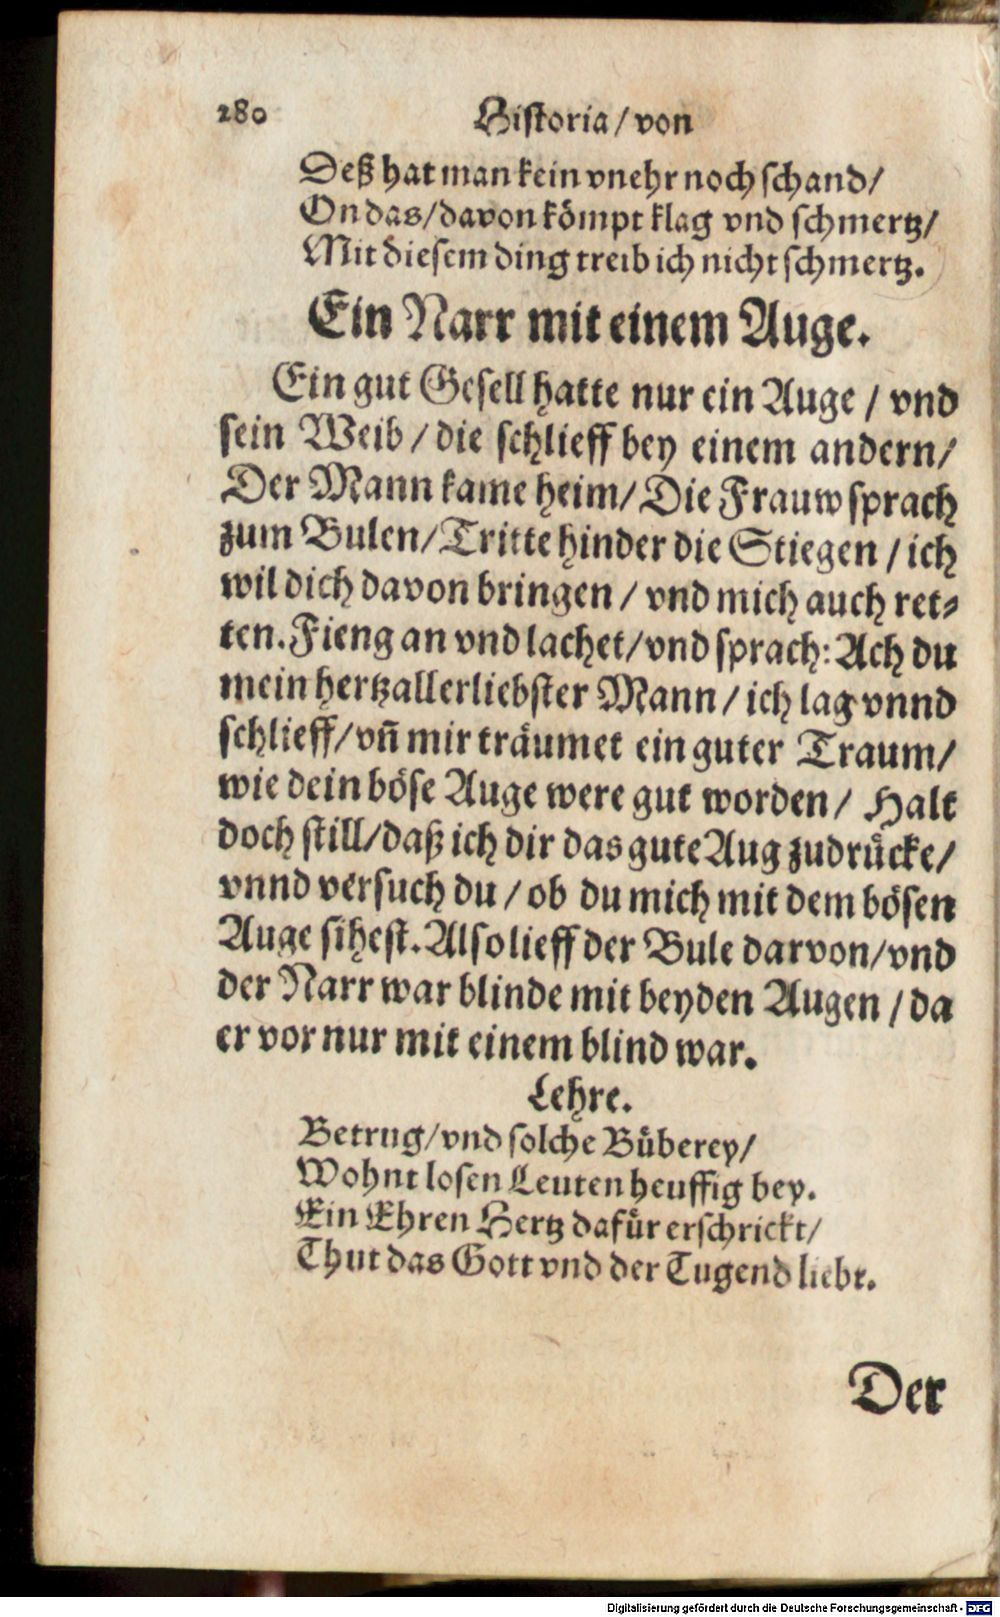 280
Historia/ von
Deß hat man kein vnehr noch schand/
On das/ davon kömpt klag vnd schmertz/
Mit diesem ding treib ich nicht schmertz.
Ein Narr mit einem Auge.
Ein gut Gesell hatte nur ein Auge / vnd
sein Weib / die schlieff bey einem andern/
Der Mann kame heim/ Die Frauw sprach
zum Bulen/ Tritte hinder die Stiegen / ich
wil dich davon bringen / vnd mich auch ret-
ten. Fieng an vnd lachet/ vnd sprach: Ach du
mein hertzallerliebster Mann / ich lag vnnd
schlieff/ vñ mir träumet ein guter Traum/
wie dein böse Auge were gut worden/ Halt
doch still/ daß ich dir das gute Aug zudrücke/
vnnd versuch du / ob du mich mit dem bösen
Auge sihest. Also lieff der Bule darvon/ vnd
der Narr war blinde mit beyden Augen / da
er vor nur mit einem blind war.
Lehre.
Betrug/ vnd solche Büberey/
Wohnt losen Leuten heuffig bey.
Ein Ehren Hertz dafür erschrickt/
Thut das Gott vnd der Tugend liebt.
Der
Digitalisierung gefördert durch die Deutsche Forschungsgemeinschaft - DFG